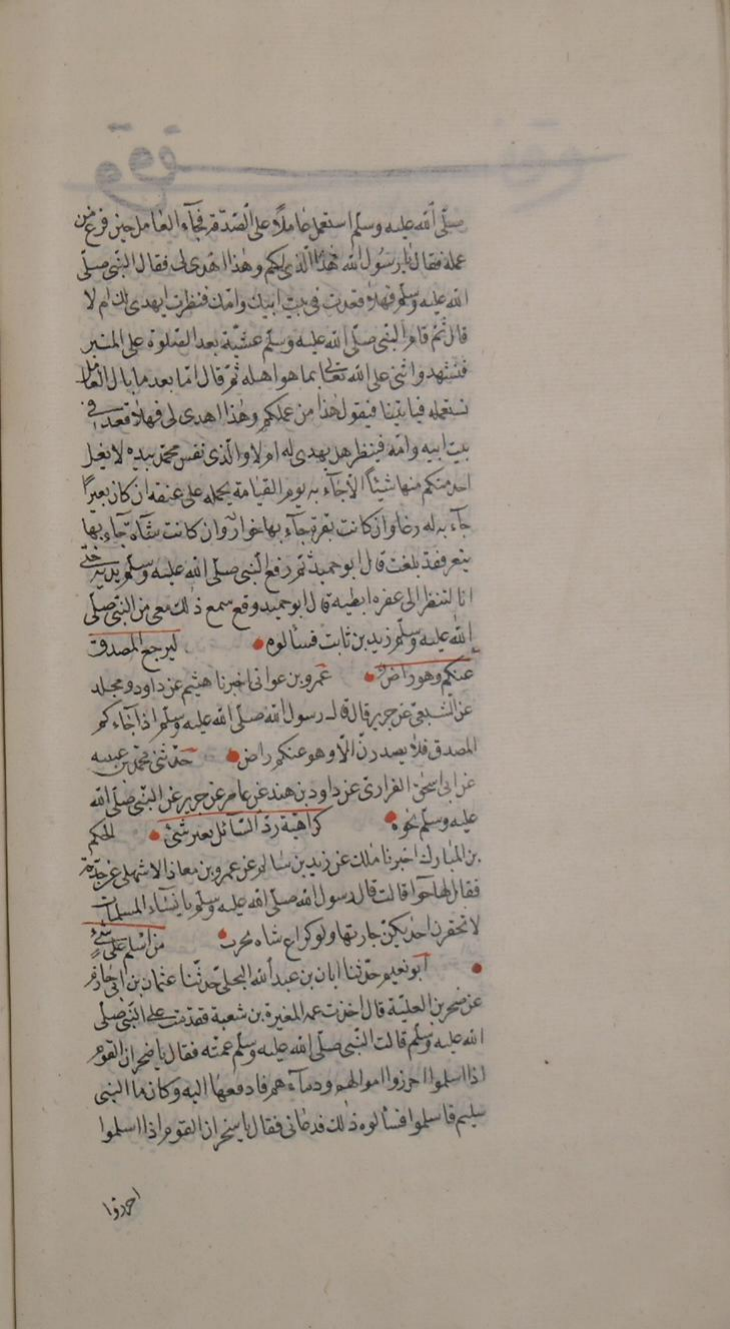 وقف
صلى الله عليه وسلم استعمل عاملاً على الصدقة فجآء العامل حين فرغ من
عمله فقال يا رسول الله هذا الذى لكم وهذا اهدى لى فقال النبى صلى
الله عليه وسلم فهلا قعدت فى بيت ابيك وامك فنظرت ايهدى لك ام لا
قال ثم قام النبى صلى الله عليه وسلم عشية بعد الصلوة على المنبر
فتشهد واثنى على الله تعالى بما هو اهله ثم قال اما بعد ما بال العامل
نستعمله فياتينا فيقول هذا من عملكم وهذا اهدى لى فهلا قعد فى
بيت ابيه وامه فينظر هل يهدى له ام لا والذى نفس محمد بيده لا يغل
احد منكم منها شيئاً الا جآء به يوم القيامة يحمله على عنقه ان كان بعيرا
جآء به له رغا وان كانت بقرة جآء بها خوار وان كانت شاة جاء بها
يتعر فقد بلغت قال ابو حميد ثم رفع النبى صلى الله عليه وسلم يديه حتى
انا لننظر الى عفره ابطيه قال ابو حميد وقع سمع ذلك معى من النبى صلى
الله عليه وسلم زيد بن ثابت فسالوه ليرجع المصدق
عنكم وهو راض عمرو بن عوانى اخبرنا هشيم عن داود ومجلد
عن الشبعى عن جرير قال قال رسول الله صلى الله عليه وسلم اذا جآءكم
المصدق فلا يصدرن الا وهو عنكم راض حدثنى محمد بن عيسه
عن ابى اسحق الفزارى عن داود بن هند عن عامر عن جرير عن النبى صلى الله
عليه وسلم نحوه كراهية رد السآئل بغير شئ الحكم
بن المبارك اخبرنا ملك عن زيد بن سالم عن عمرو بن معاذ الاشهلى عن جدته
فقال لها حوا قالت قال رسول الله صلى الله عليه وسلم يا نسآء المسلمات
لا تحقرن احديكن جارتها ولو كراع شاه محرب من اسلم على شئ
ابو نعيم حدثنا ابان بن عبد الله البجلى حدثنا عثمان بن ابى حازم
عن صخر بن العلية قال اخذت عمه المغيرة بن شعبة فقدمت على النبى صلى
الله عليه وسلم قالت النبى صلى الله عليه وسلم عمته فقال يا صخر ان القوم
اذا اسلموا احرزوا اموالهم ودمآءهم فادفعها اليه وكان ما البنى
سليم فاسلموا فسالوه ذلك فدعانى فقال يا سخر ان القوم اذا اسلموا
احرزوا